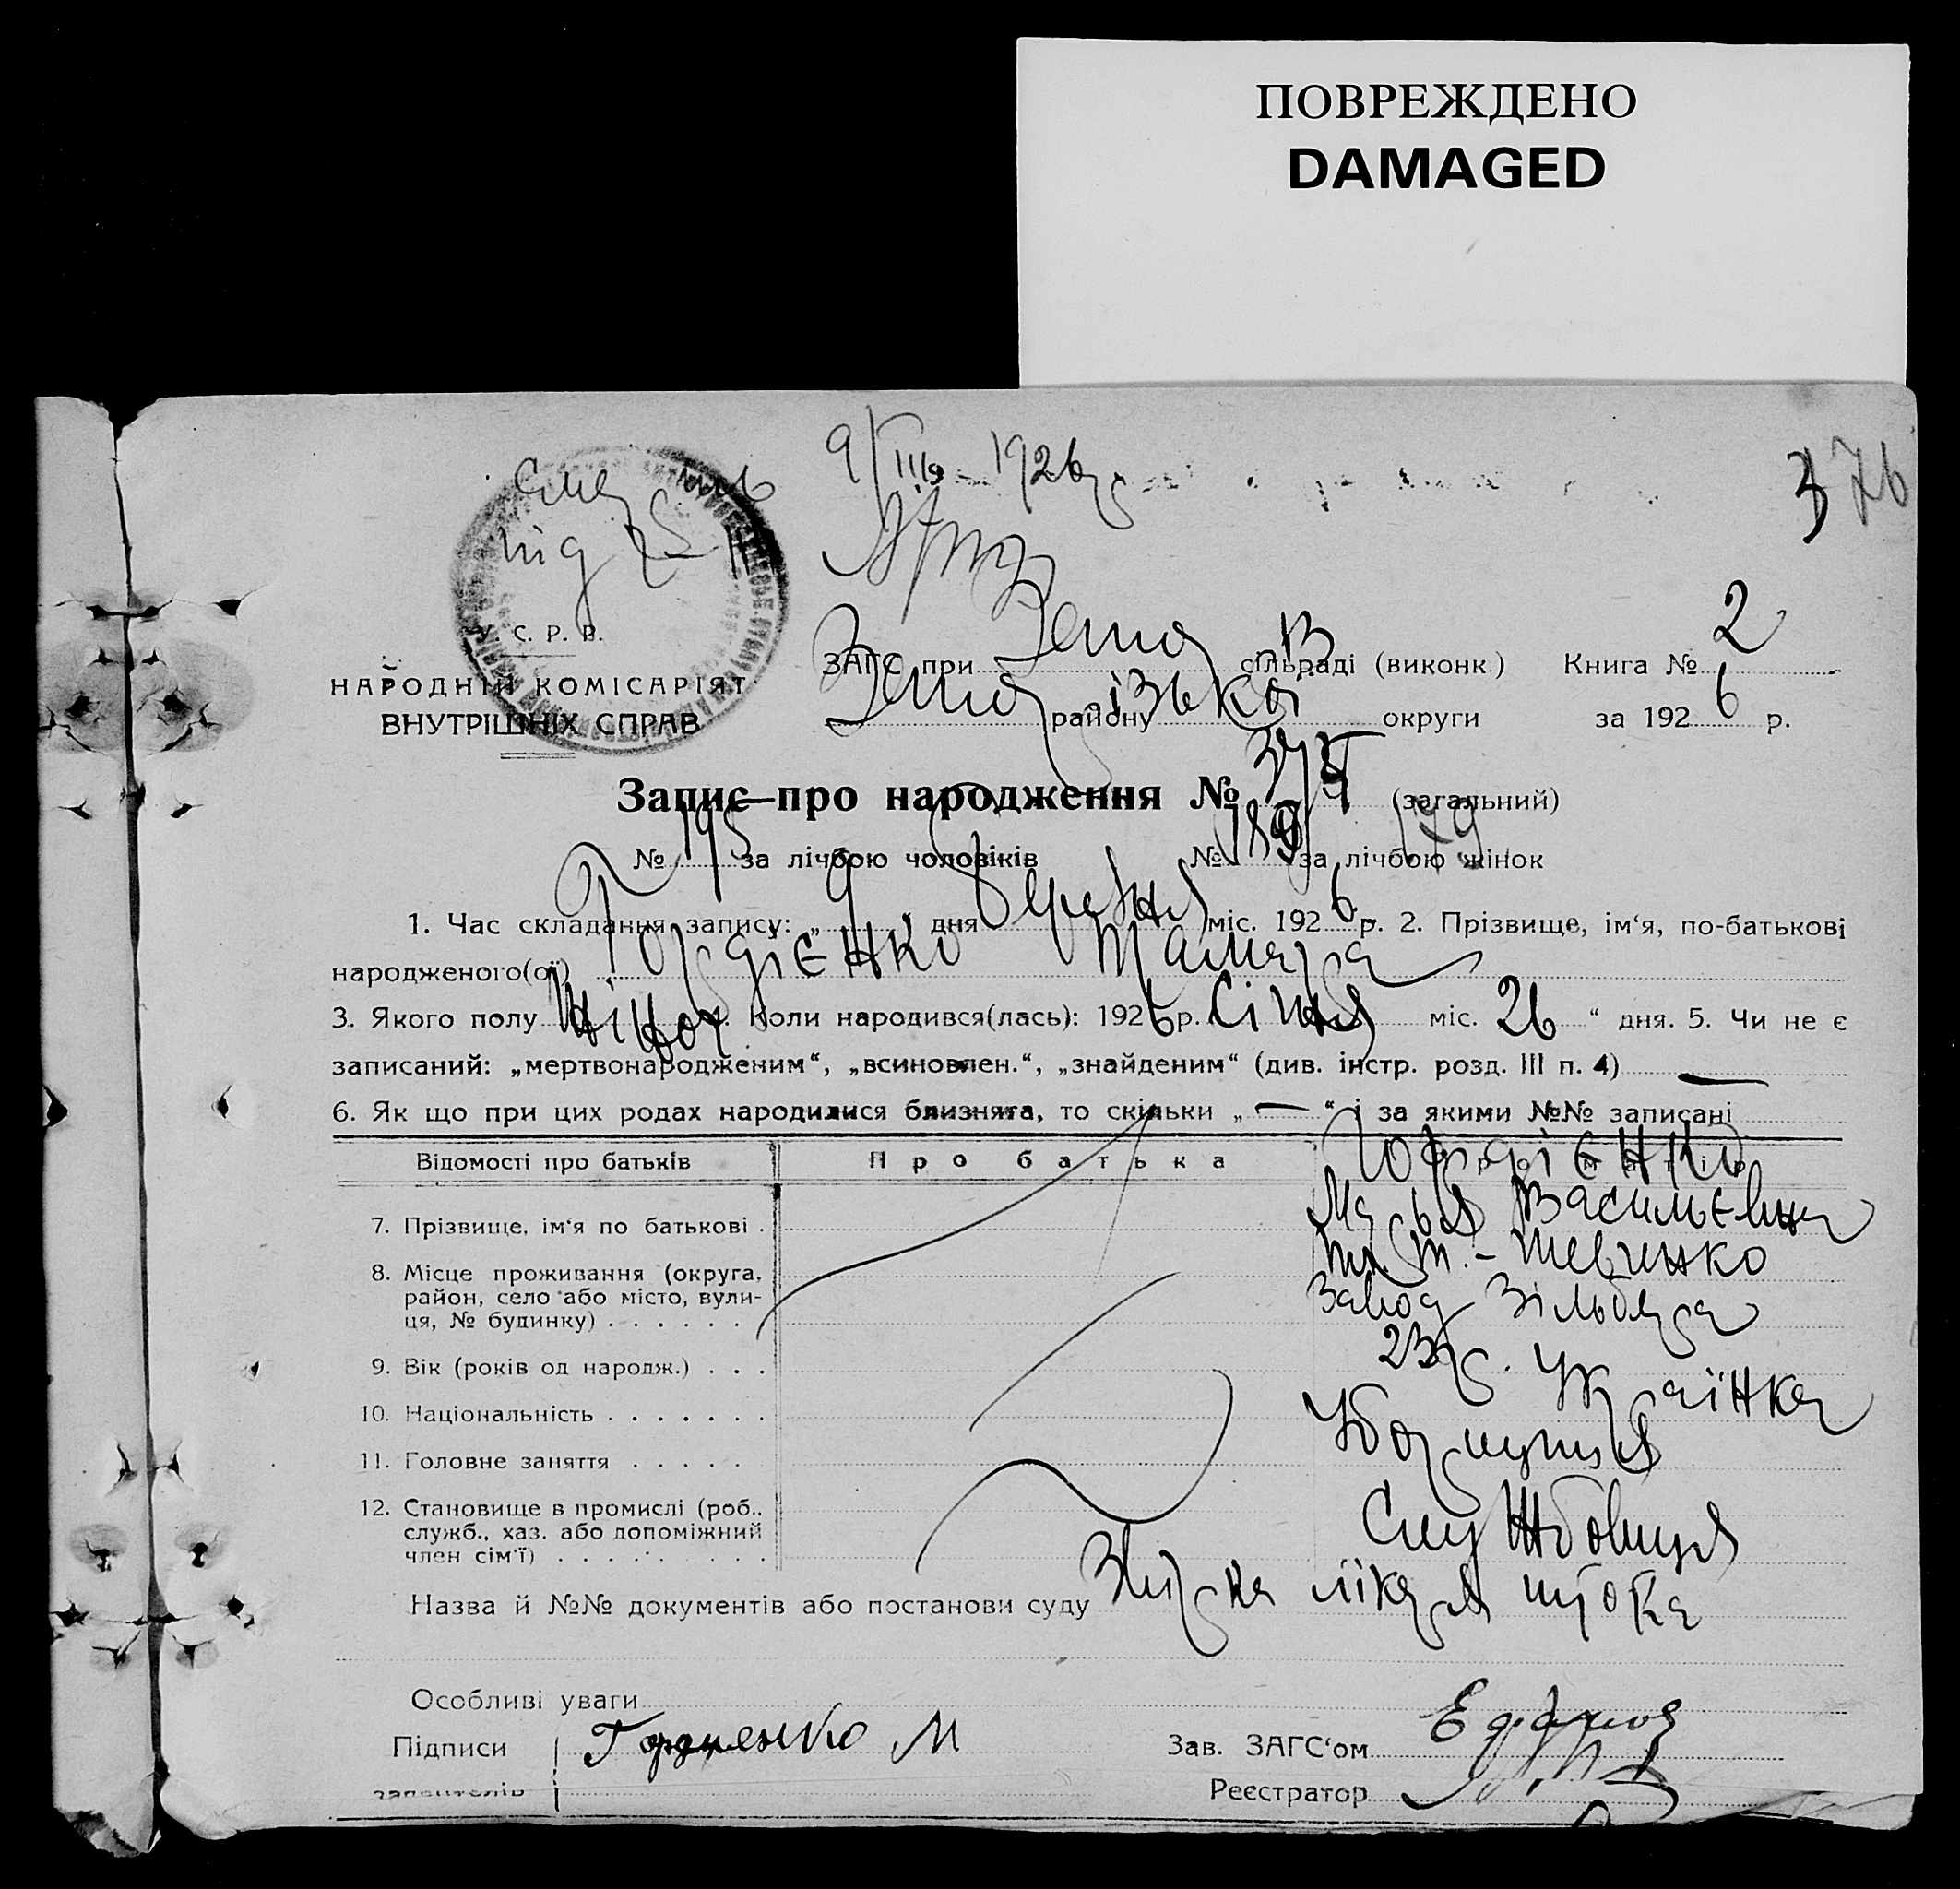 ПОВРЕЖДЕНО
DAMAGED
9/III 1926
376
У. С. Р. Р.
НАРОДНІЙ КОМІСАРІЯТ
ВНУТРІШНІХ СПРАВ
ЗАГС при сільраді (виконк.) Книга № 2
району округи за 1926 р.
Запис про народження № (загальний)
№ 195 за лічбою чоловіків № за лічбою жінок 179
1. Час складання запису: „9" дня Березня міс. 1926 р. 2. Прізвище, ім'я, по-батькові
народженого(ої) Гордієнко Тамара
3. Якого полу Жіноч. Коли народився(лась): 1926 р. Січня міс. 26 " дня. 5. Чи не є
записаний: „мертвонародженим", „всиновлен.", „знайденим" (див. інстр. розд. III п. 4) —
6. Як що при цих родах народилися близнята, то скільки „ — " і за якими №№ записані
Відомості про батьків Про батька Про матір
Гордієнко
7. Прізвище, ім'я по батькові . Марья Васильєвна
8. Місце проживання (округа,
район, село або місто, вули-
ця, № будинку) . . . . . .
Т. - Шевченко
Завод
9. Вік (років од народж.) . . . 23 р.
10. Національність . . . . . . . Українка
11. Головне заняття . . . . . Уборщиця
12. Становище в промислі (роб.,
служб., хаз. або допоміжний
член сім'ї) . . . . . . . . .
Службовиця
Назва й №№ документів або постанови суду лікаря
Особливі уваги
Підписи Гордиенко М Зав. ЗАГС'ом
заявителів Реєстратор